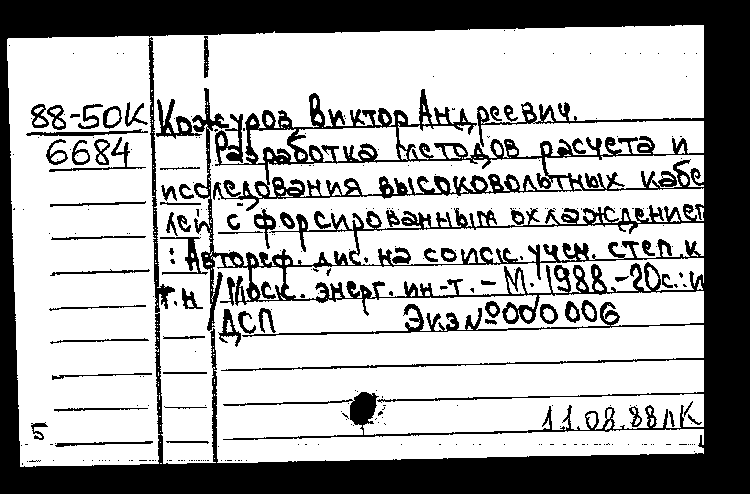 88-50К Кожуров Виктор Андреевич.
6684 Разработка методов расчета и
исследования высоковольтных кабе
лей с форсированным охлаждением
: Автореф. дис. на соиск. учен. степ. к
т.н /Моск. энерг. ин-т. – М. 1988.-20с.:и
ДСП Экз №000006
11.08.88 ЛК
5